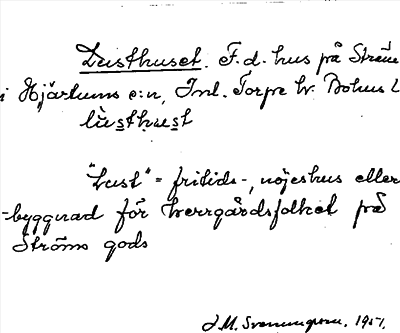 Lusthuset. F.d. hus på Ströms
i Hjärtums s:n, Inl. Torpe hr. Bohus l
lùsthu̇sẹt
"Lust" = fritids-, nöjeshus eller
-byggnad för herrgårdsfolket på
Ströms gods
J.M. Svenungsson. 1951.